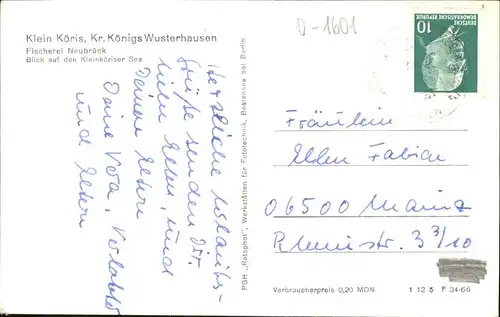 Klein Köris, Kr. Königs Wusterhausen
Fischerei Neubrück
Blick auf den Kleinköriser See
0-1601
DEUTSCHE DEMOKRATISCHE REPUBLIK
10
Herzliche Urlaubs-
Grüße senden Dir,
liebe Ellen, und
Deinen Eltern
Deine Vera,
und Eltern
PGH „Rotophot", Werkstätten für Fototechnik, Bestensee bei Berlin
Fräulein
Ellen Fabian
06500 Mainz
Rheinstr. 3 3/10
Verbraucherpreis 0,20 MDN
1 12 5 F 34-66